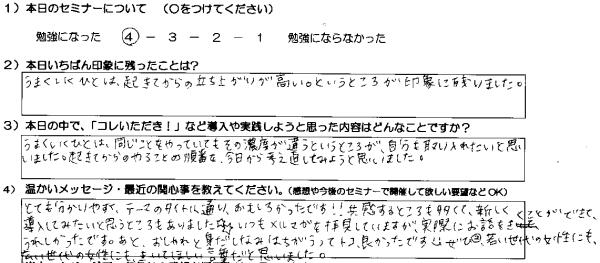 1）本日のセミナーについて （○をつけてください）
勉強になった ④ － 3 － 2 － 1 勉強にならなかった
2）本日いちばん印象に残ったことは？
うまくいくひとは、起きてからの立ち上がりが高い。というところが印象に残りました。
3）本日の中で、「コレいただき！」など導入や実践しようと思った内容はどんなことですか？
うまくいくひとは、同じことをやっていてもその濃度が違うというところが、自分も取り入れたいと思
いました。起きてからのやることの順番を、今日から考え直してみようと思いました。
4） 温かいメッセージ・最近の関心事を教えてください。（感想や今後のセミナーで開催して欲しい要望などOK）
とても分かりやすく、テーマのタイトル通り、おもしろかったです！！共感するところも多くて、新しく
導入してみたいと思うところもありました。いつもメルマガを拝見していますが、実際にお話をきくことができて、
うれしかったです。あと、おしゃれと身だしなみはちがうってトコ、良かったです ぜひ 若い世代の女性にも、
言葉だと思いました。